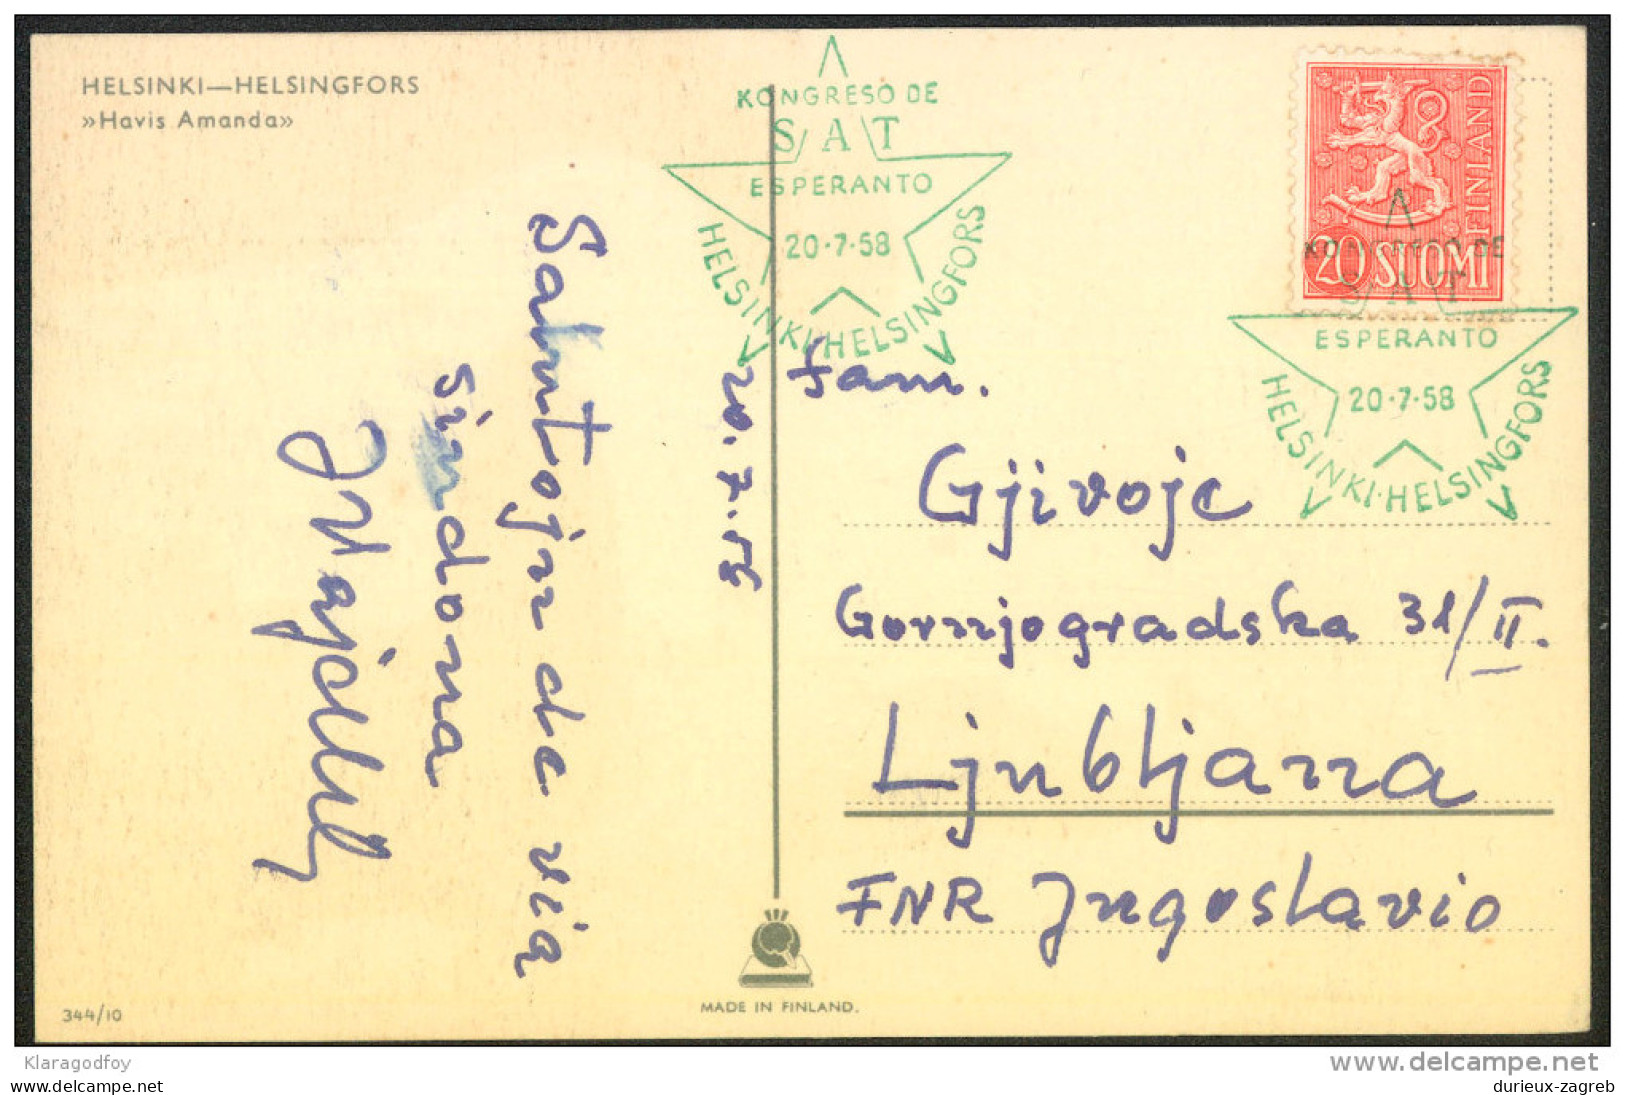 HELSINKI—HELSINGFORS
»Havis Amanda»
KONGRESO DE
SAT
ESPERANTO
20·7·58
HELSINKI·HELSINGFORS
20 SUOMI
FINLAND
KONGRESO DE
SAT
ESPERANTO
20·7·58
HELSINKI·HELSINGFORS
Salutojn de via
sindona
20.7.58
Fam.
Gjivoje
Gornjogradska 31/II.
Ljubljana
FNR Jugoslavio
MADE IN FINLAND.
344/10
Klaragodfoy
delcampe.net
durieux-zagreb